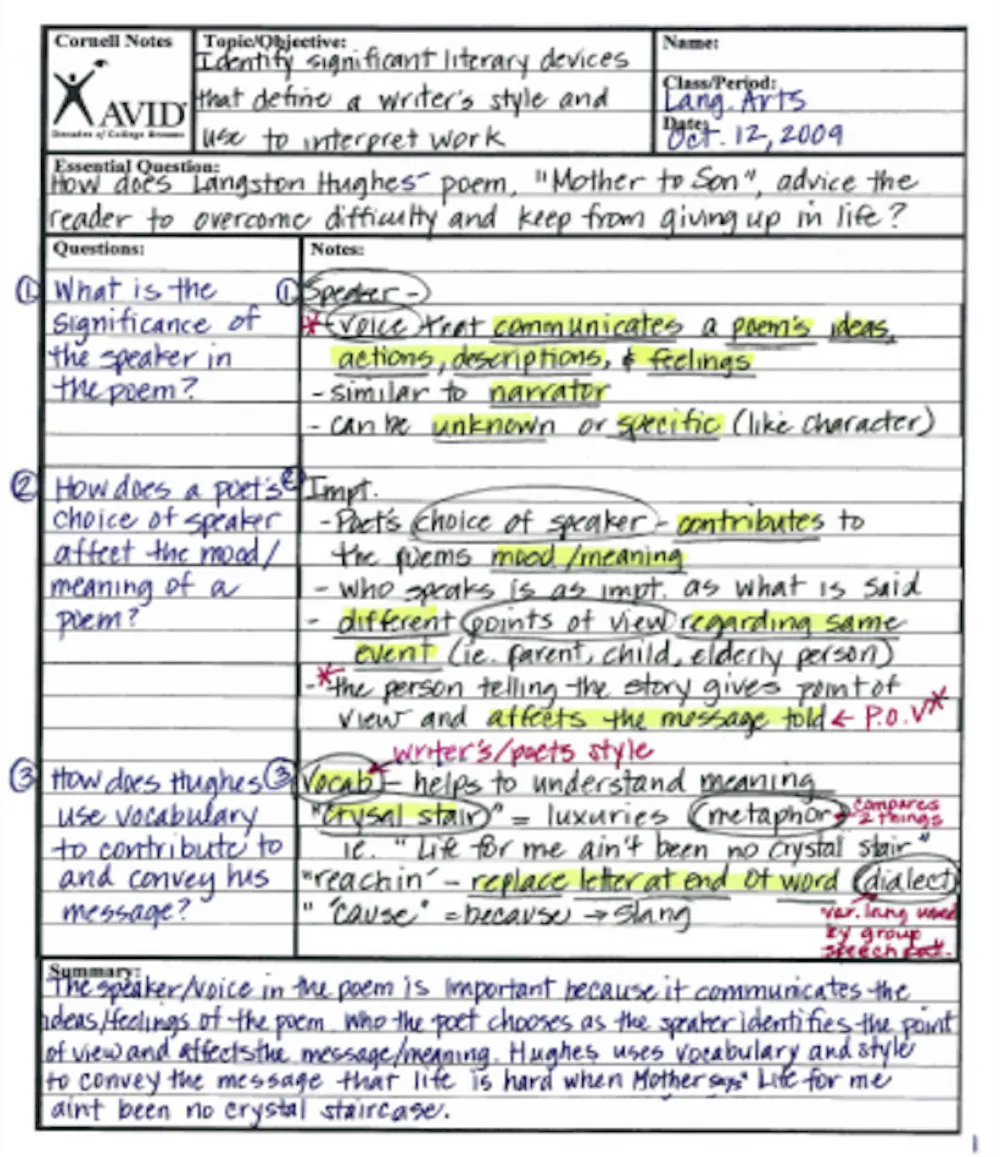 Cornell Notes
AVID
Decades of College Dreams
Topic/Objective:
Identify significant literary devices
that define a writer's style and
use to interpret work
Name:
Class/Period:
Lang. Arts
Date:
Oct. 12, 2009
Essential Question:
How does Langston Hughes' poem, "Mother to Son", advice the
reader to overcome difficulty and keep from giving up in life?
Questions:
① What is the
significance of
the speaker in
the poem?
② How does a poet's
choice of speaker
affect the mood/
meaning of a
poem?
③ How does Hughes
use vocabulary
to contribute to
and convey his
message?
Notes:
① Speaker -
* voice that communicates a poem's ideas,
actions, descriptions, & feelings
- similar to narrator
- can be unknown or specific (like character)
② Impt.
- Poet's choice of speaker - contributes to
the poems mood/meaning
- who speaks is as impt. as what is said
- different points of view regarding same
event (ie. parent, child, elderly person)
- * the person telling the story gives point of
view and affects the message told ← P.O.V *
writer's/poets style
③ Vocab - helps to understand meaning
"Crysal stair" = luxuries (metaphor) compares
2 things
ie. "Life for me ain't been no crystal stair"
"reachin' - replace letter at end of word (dialect)
" 'cause" = because → slang
var. lang used
by group
speech pat.
Summary:
The speaker/voice in the poem is important because it communicates the
ideas/feelings of the poem. Who the poet chooses as the speaker identifies the point
of view and affects the message/meaning. Hughes uses vocabulary and style
to convey the message that life is hard when Mother says "Life for me
aint been no crystal staircase.
1